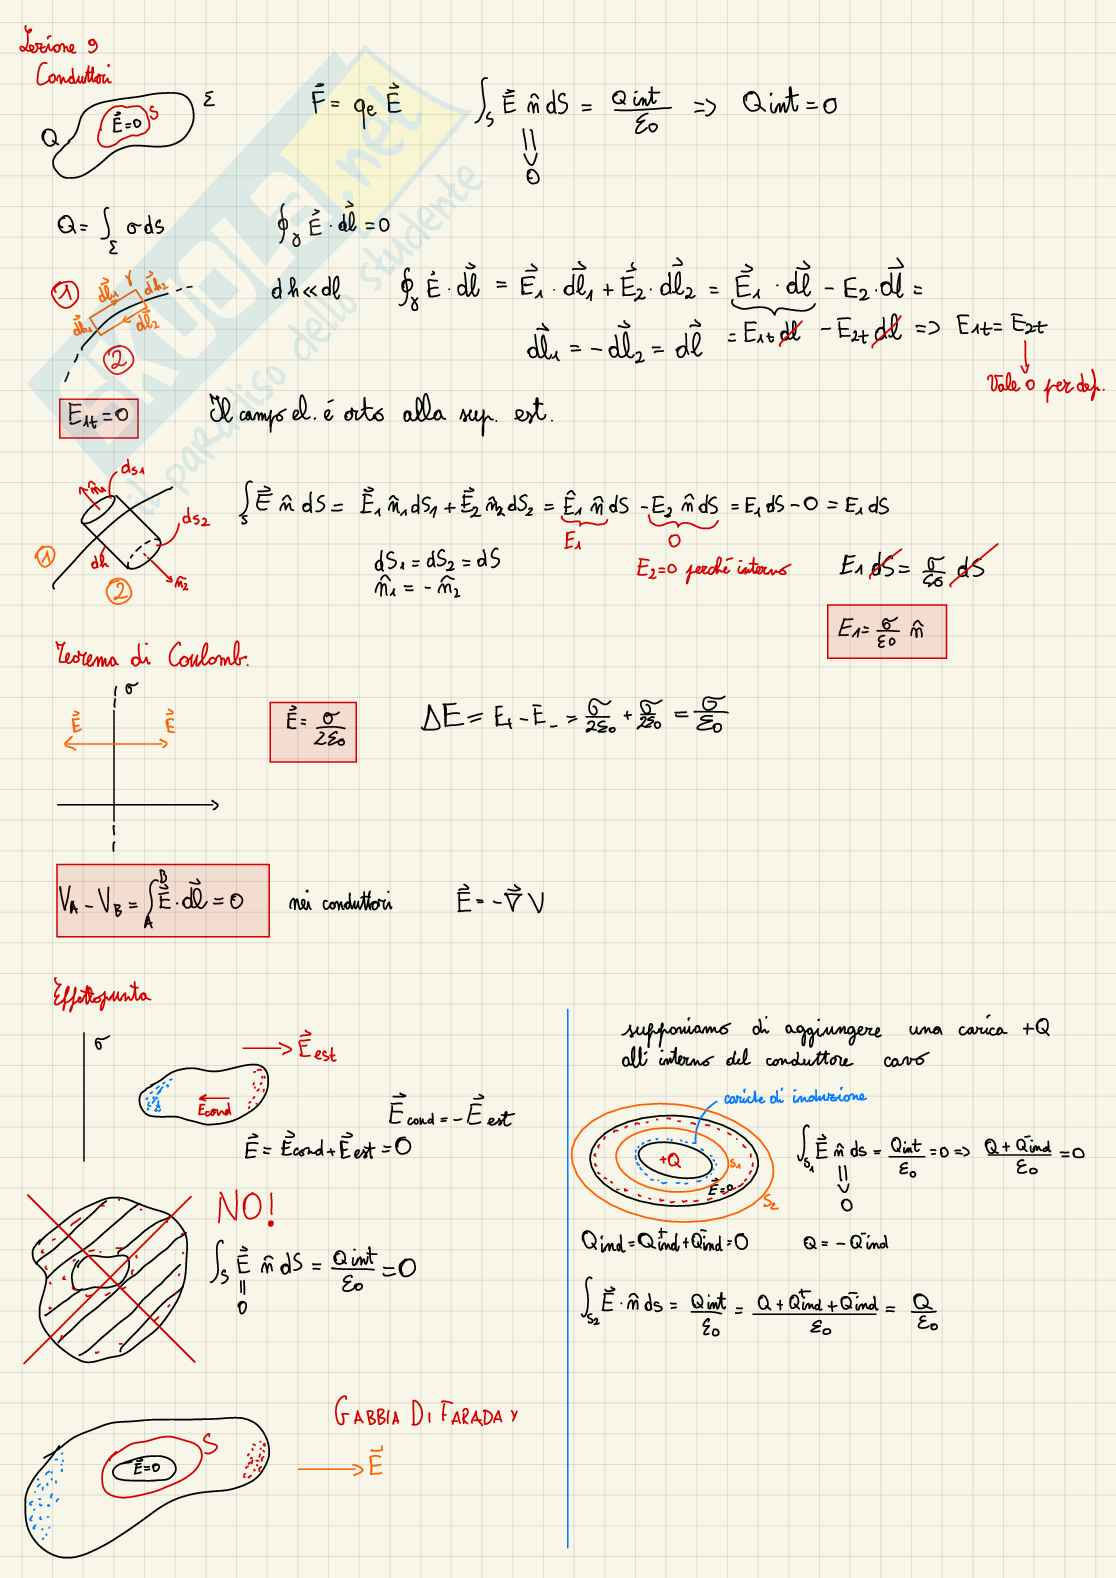 Lezione 9
Conduttori
Q E⃗=0 S Σ
F⃗ = qe E⃗
∫_S E⃗ n̂ dS = Qint/ε0 => Qint = 0
0
Q = ∫_Σ σ ds
∮_γ E⃗ · dl⃗ = 0
1 dl⃗1 γ dh⃗2 dh⃗1 dl⃗2 2
dh << dl
∮_γ E⃗ · dl⃗ = E⃗1 · dl⃗1 + E⃗2 · dl⃗2 = E⃗1 · dl⃗ - E2 · dl⃗ =
dl⃗1 = -dl⃗2 = dl⃗
= E1t dl - E2t dl => E1t = E2t
Vale 0 per def.
E1t = 0
Il campo el. é orto alla sup. est.
n̂1 ds1 ds2 1 dh 2 n̂2
∫_S E⃗ n̂ dS = E⃗1 n̂1 dS1 + E⃗2 n̂2 dS2 = Ê1 n̂ dS - E2 n̂ dS = E1 dS - 0 = E1 dS
E1 0
dS1 = dS2 = dS
n̂1 = - n̂2
E2=0 perché interno
E1 dS = σ/ε0 dS
E1 = σ/ε0 n̂
Teorema di Coulomb.
σ
E⃗ E⃗
E⃗ = σ/2ε0
ΔE = E+ - E- = σ/2ε0 + σ/2ε0 = σ/ε0
VA - VB = ∫_A^B E⃗ · dl⃗ = 0 nei conduttori
E⃗ = -∇⃗ V
Effetto punta
σ
E⃗est
Econd
E⃗cond = - E⃗est
E⃗ = E⃗cond + E⃗est = 0
NO!
∫_S E⃗ n̂ dS = Qint/ε0 = 0
0
GABBIA DI FARADAY
S
E⃗=0
E⃗
supponiamo di aggiungere una carica +Q
all' interno del conduttore cavo
cariche di induzione
+Q S1 E⃗=0 S2
∫_S1 E⃗ n̂ ds = Qint/ε0 = 0 => Q + Q⁻ind/ε0 = 0
0
Qind = Q⁺ind + Q⁻ind = 0
Q = - Q⁻ind
∫_S2 E⃗ · n̂ ds = Qint/ε0 = Q + Q⁺ind + Q⁻ind/ε0 = Q/ε0
SKUOLA.net
il paradiso dello studente